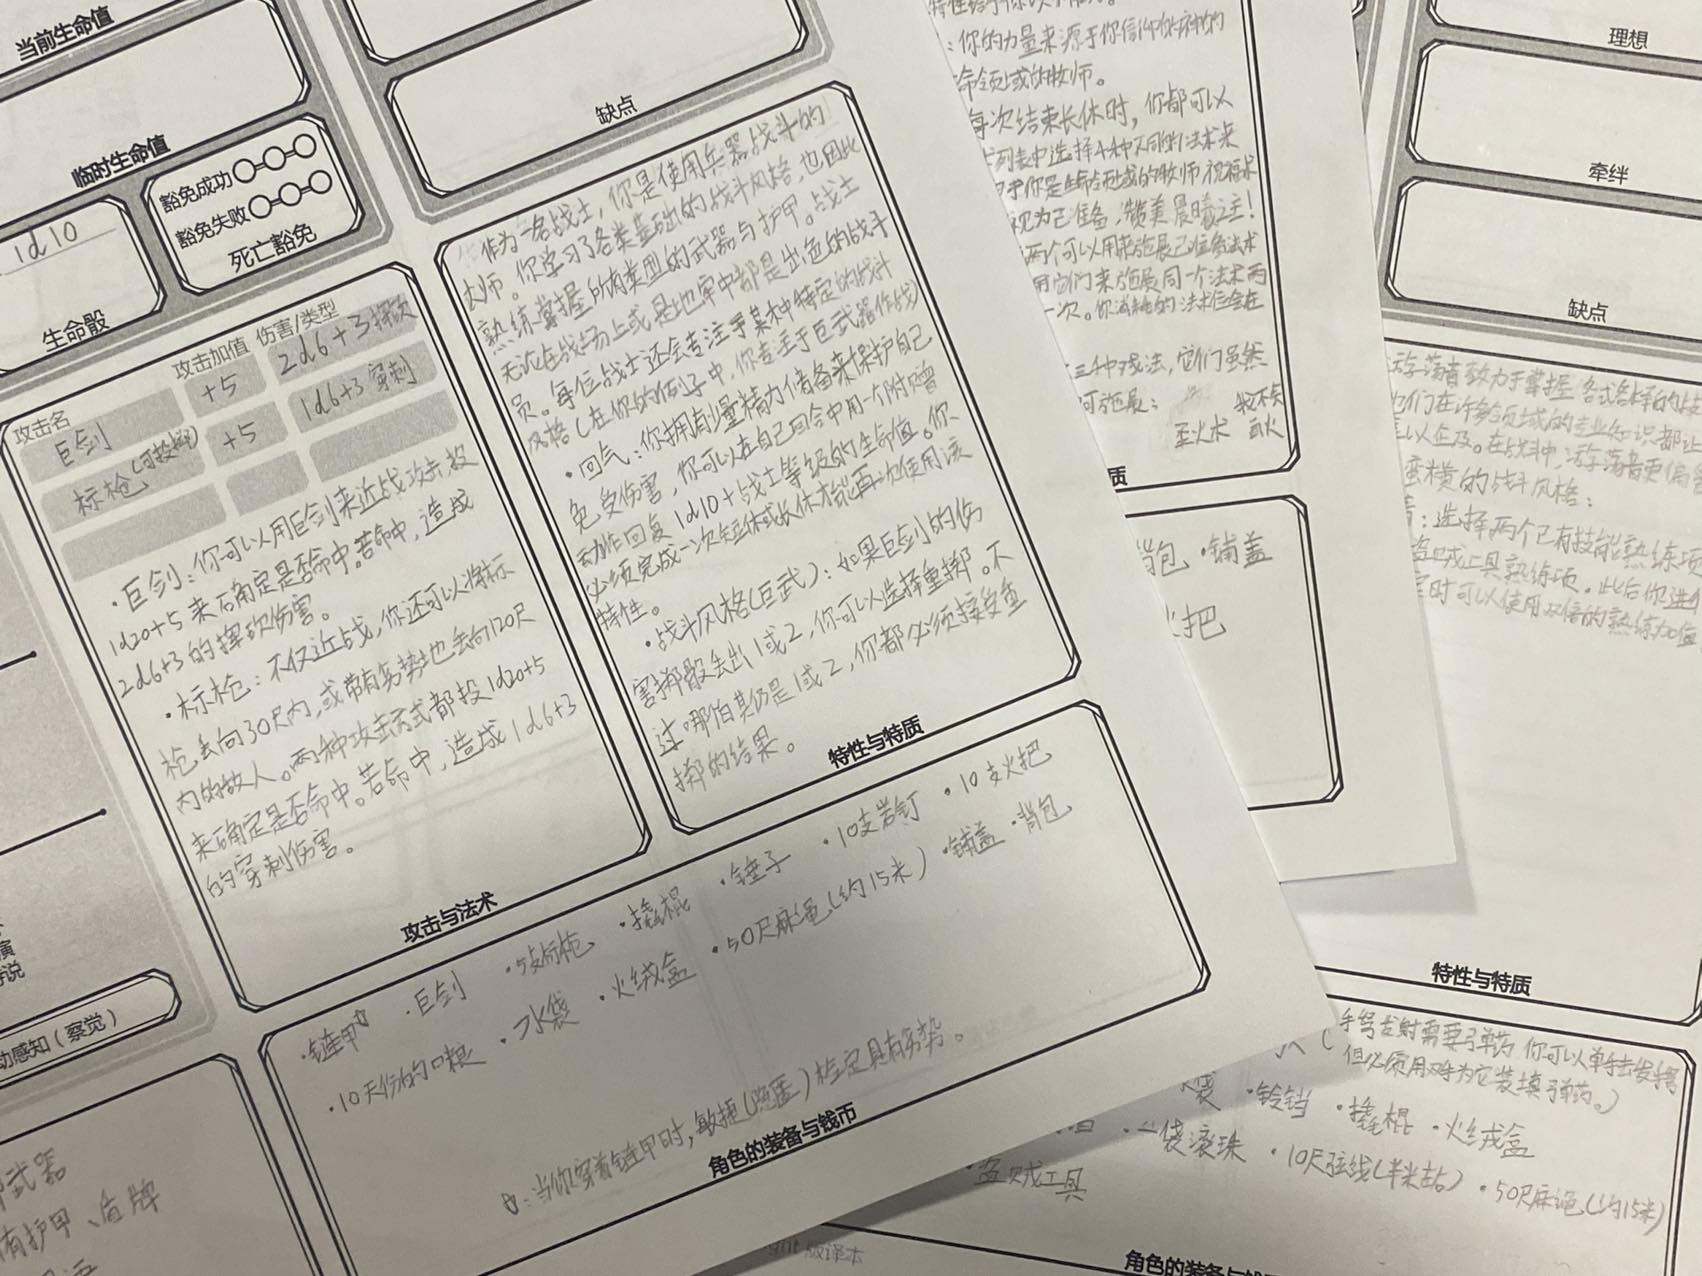 当前生命值
临时生命值
1d10
生命骰
豁免成功
豁免失败
死亡豁免
缺点
攻击名 攻击加值 伤害/类型
巨剑 +5 2d6+3挥砍
标枪(可投掷) +5 1d6+3穿刺
·巨剑:你可以用巨剑来近战攻击投
1d20+5来确定是否命中。若命中,造成
2d6+3的挥砍伤害。
·标枪:不仅近战,你还可以将标
枪丢向30尺内,或带有劣势地丢向120尺
内的敌人。两种攻击方式都投1d20+5
来确定是否命中。若命中,造成1d6+3
的穿刺伤害。
攻击与法术
作为一名战士,你是使用兵器战斗的
大师。你学习了各类基础的战斗风格,也因此
熟练掌握所有类型的武器与护甲。战士
无论在战场上或是地牢中都是出色的战斗
员。每位战士还会专注于某种特定的战斗
风格(在你的例子中,你专注于巨武器作战)
·回气:你拥有少量精力储备来保护自己
免受伤害,你可以在自己回合中用一个附赠
动作回复1d10+战士等级的生命值。你
必须完成一次短休或长休才能再次使用该
特性。
·战斗风格(巨武):如果巨剑的伤
害掷骰丢出1或2,你可以选择重掷。不
过哪怕其仍是1或2,你都必须接受重
掷的结果。
特性与特质
·链甲 ·巨剑 ·5支标枪 ·撬棍 ·锤子 ·10支岩钉 ·10支火把
·10天份的口粮 ·水袋 ·火绒盒 ·50尺麻绳(约15米) ·铺盖 ·背包
:当你穿着链甲时,敏捷(隐匿)检定具有劣势。
角色的装备与钱币
演
说
动感知(察觉)
武器
有护甲、盾牌
:你的力量来源于你信仰的神的
命领域的牧师。
每次结束长休时,你都可以
列表中选择4种不同的法术来
于你是生命领域的牧师 祝福术
视为已准备,赞美晨曦之主!
两个可以用来施展已准备法术
用它们来施展同一个法术两
一次。你消耗的法术位会在
三种戏法,它们虽然
可施展:
圣火术
质
背包 ·铺盖
火把
理想
牵绊
缺点
游荡者致力于掌握各式各样的
他们在许多领域的专业知识都让
以企及。在战斗中,游荡者更偏
蛮横的战斗风格:
:选择两个已有技能熟练项
盗贼工具熟练项。此后你进
定时可以使用双倍的熟练加值
特性与特质
(手弩发射需要弹药 你可以单手击发
但必须用双手为它装填弹药。)
袋 ·铃铛 ·撬棍 ·火绒盒
·一袋滚珠 ·10尺弦线(半米左右) ·50尺麻绳(约15米)
·盗贼工具
版译本
角色的装备与钱